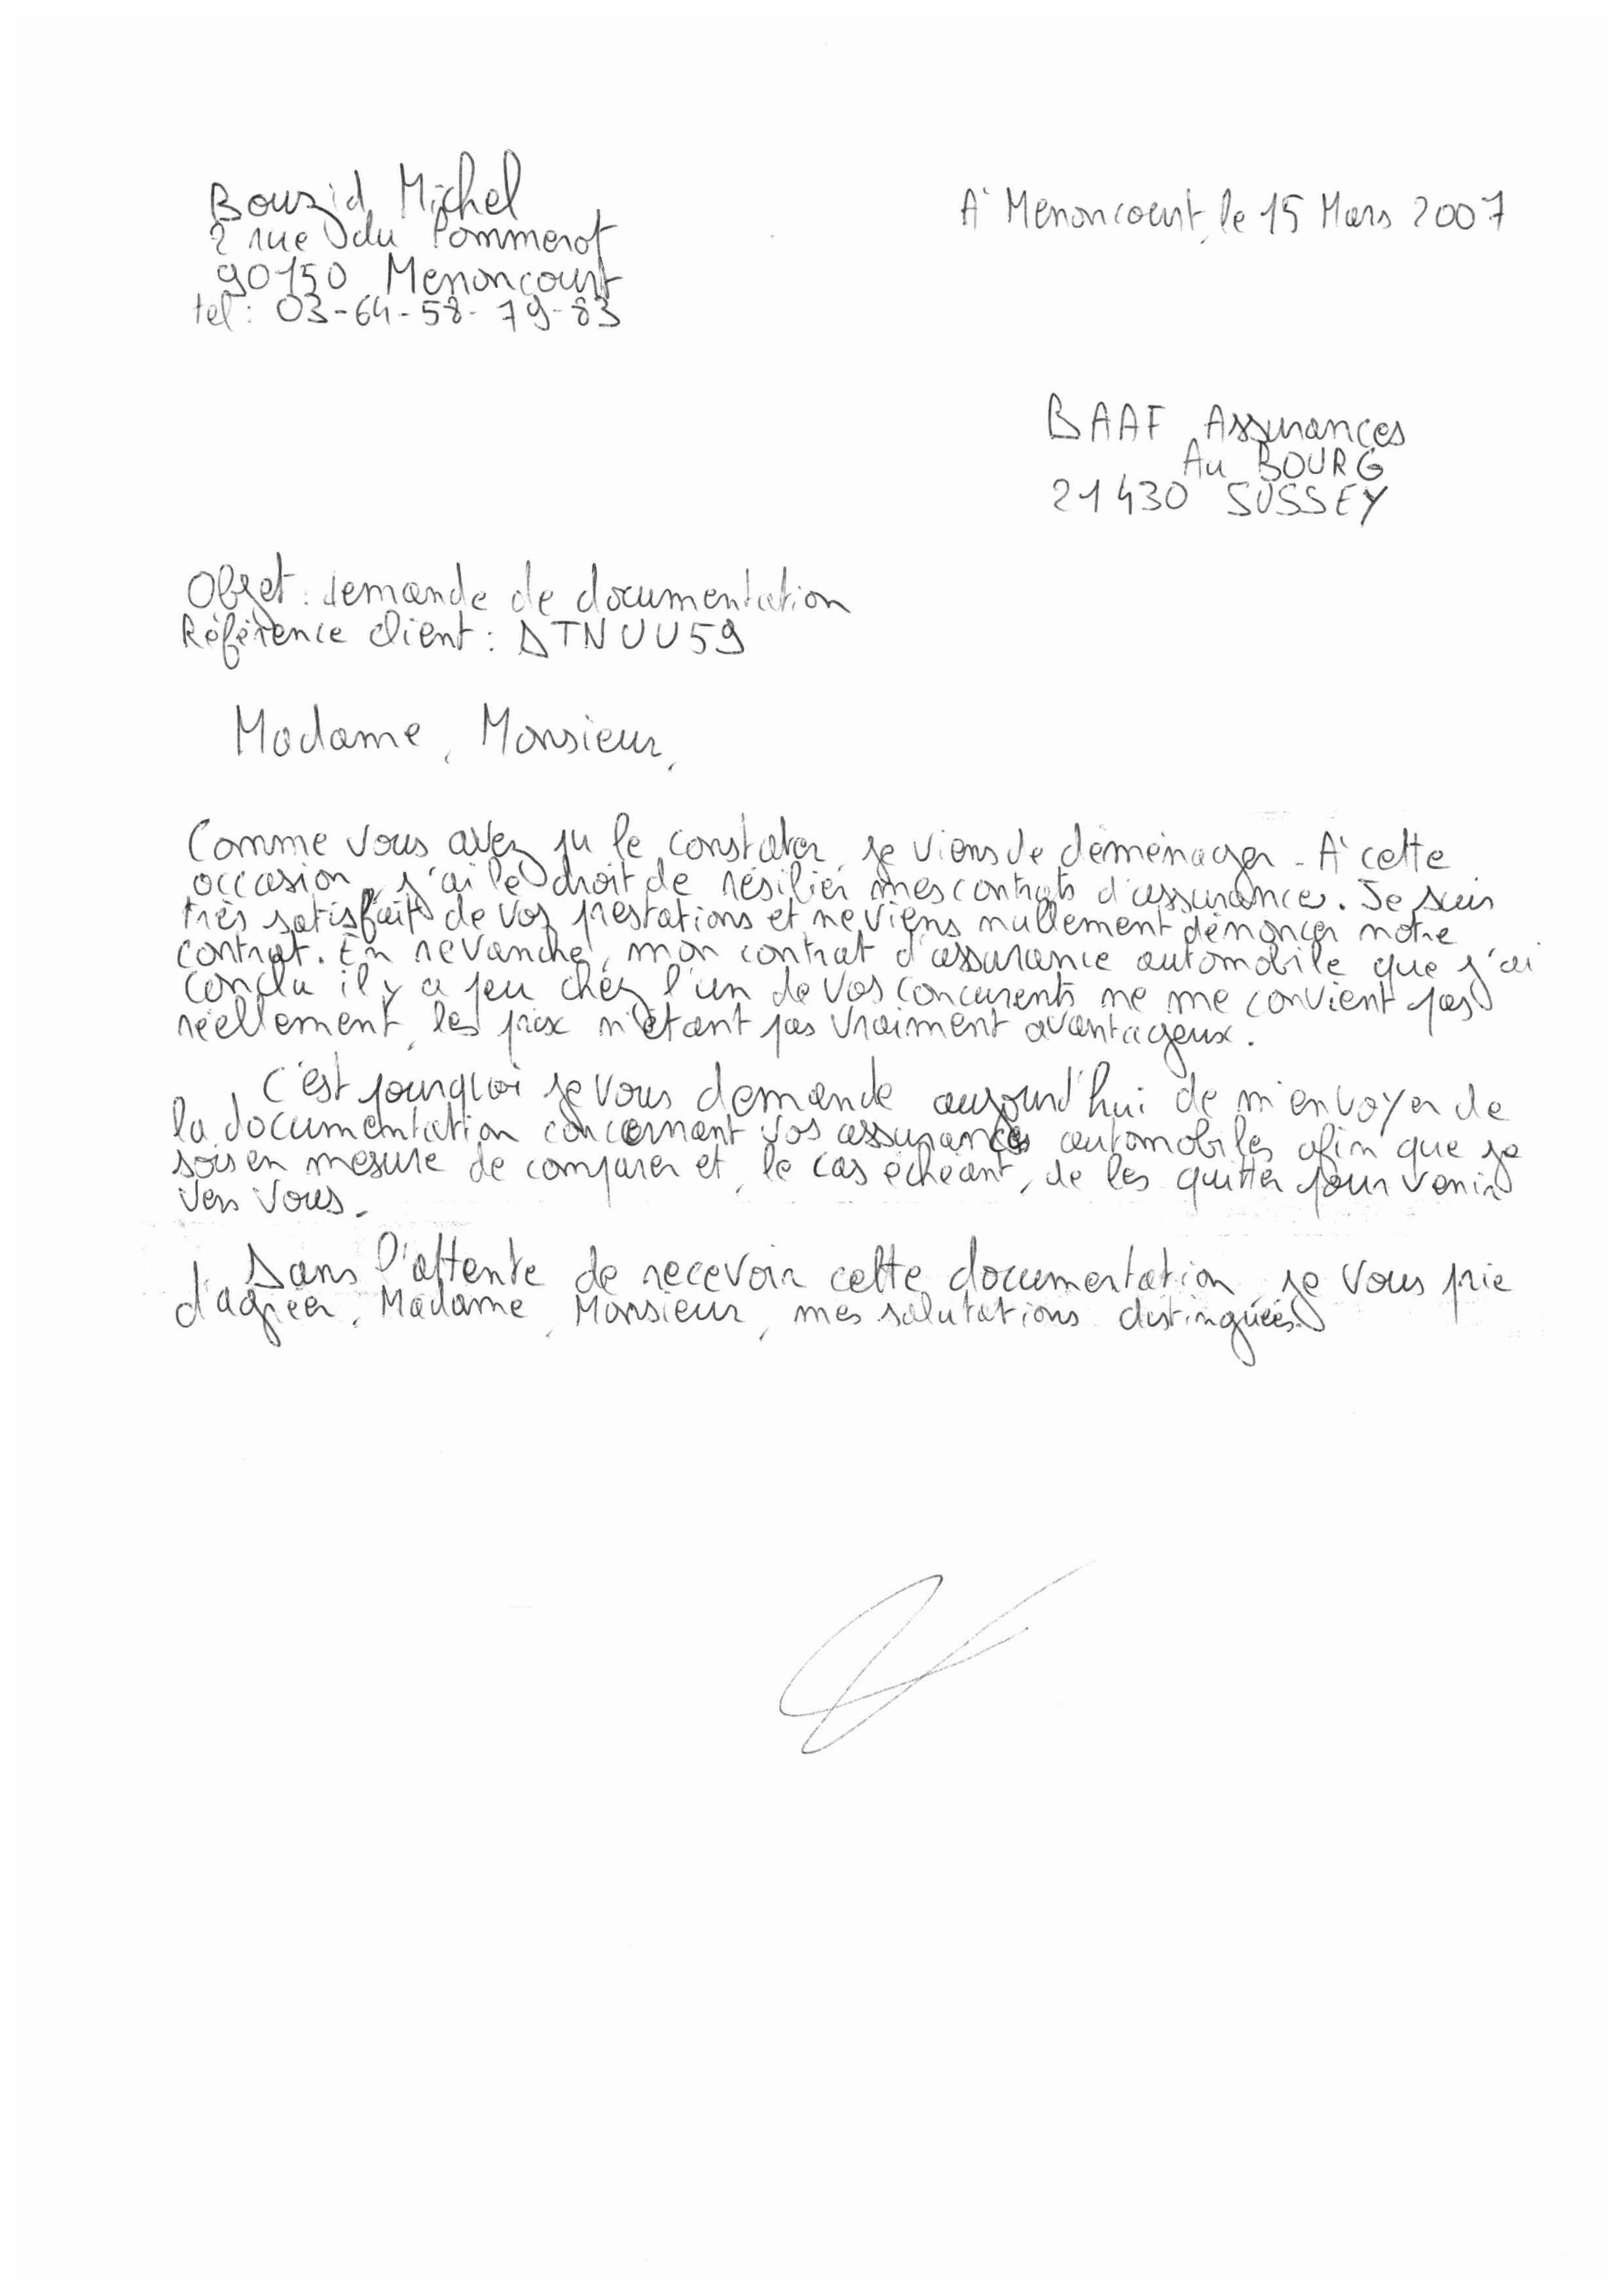 Bouzid Michel
2 rue du Pommerot
90150 Menoncourt
tel : 03-64-58-79-83
A Menoncourt, le 15 Mars 2007
BAAF Assurances
Au BOURG
21430 SUSSEY
Objet : demande de documentation
Référence client : DTNUU59
Madame, Monsieur,
Comme vous avez pu le constater, je viens de déménager. A cette
occasion, j'ai le droit de résilier mes contrats d'assurance. Je suis
très satisfait de vos prestations et ne viens nullement dénoncer notre
contrat. En revanche, mon contrat d'assurance automobile que j'ai
conclu il y a peu chez l'un de vos concurents ne me convient pas
réellement, les prix n'étant pas vraiment avantageux.
C'est pourquoi je vous demande aujourd'hui de m'envoyer de
la documentation concernant vos assurances automobiles afin que je
sois en mesure de comparer et, le cas échéant, de les quitter pour venir
vers vous.
Dans l'attente de recevoir cette documentation, je vous prie
d'agréer, Madame, Monsieur, mes salutations distinguées.